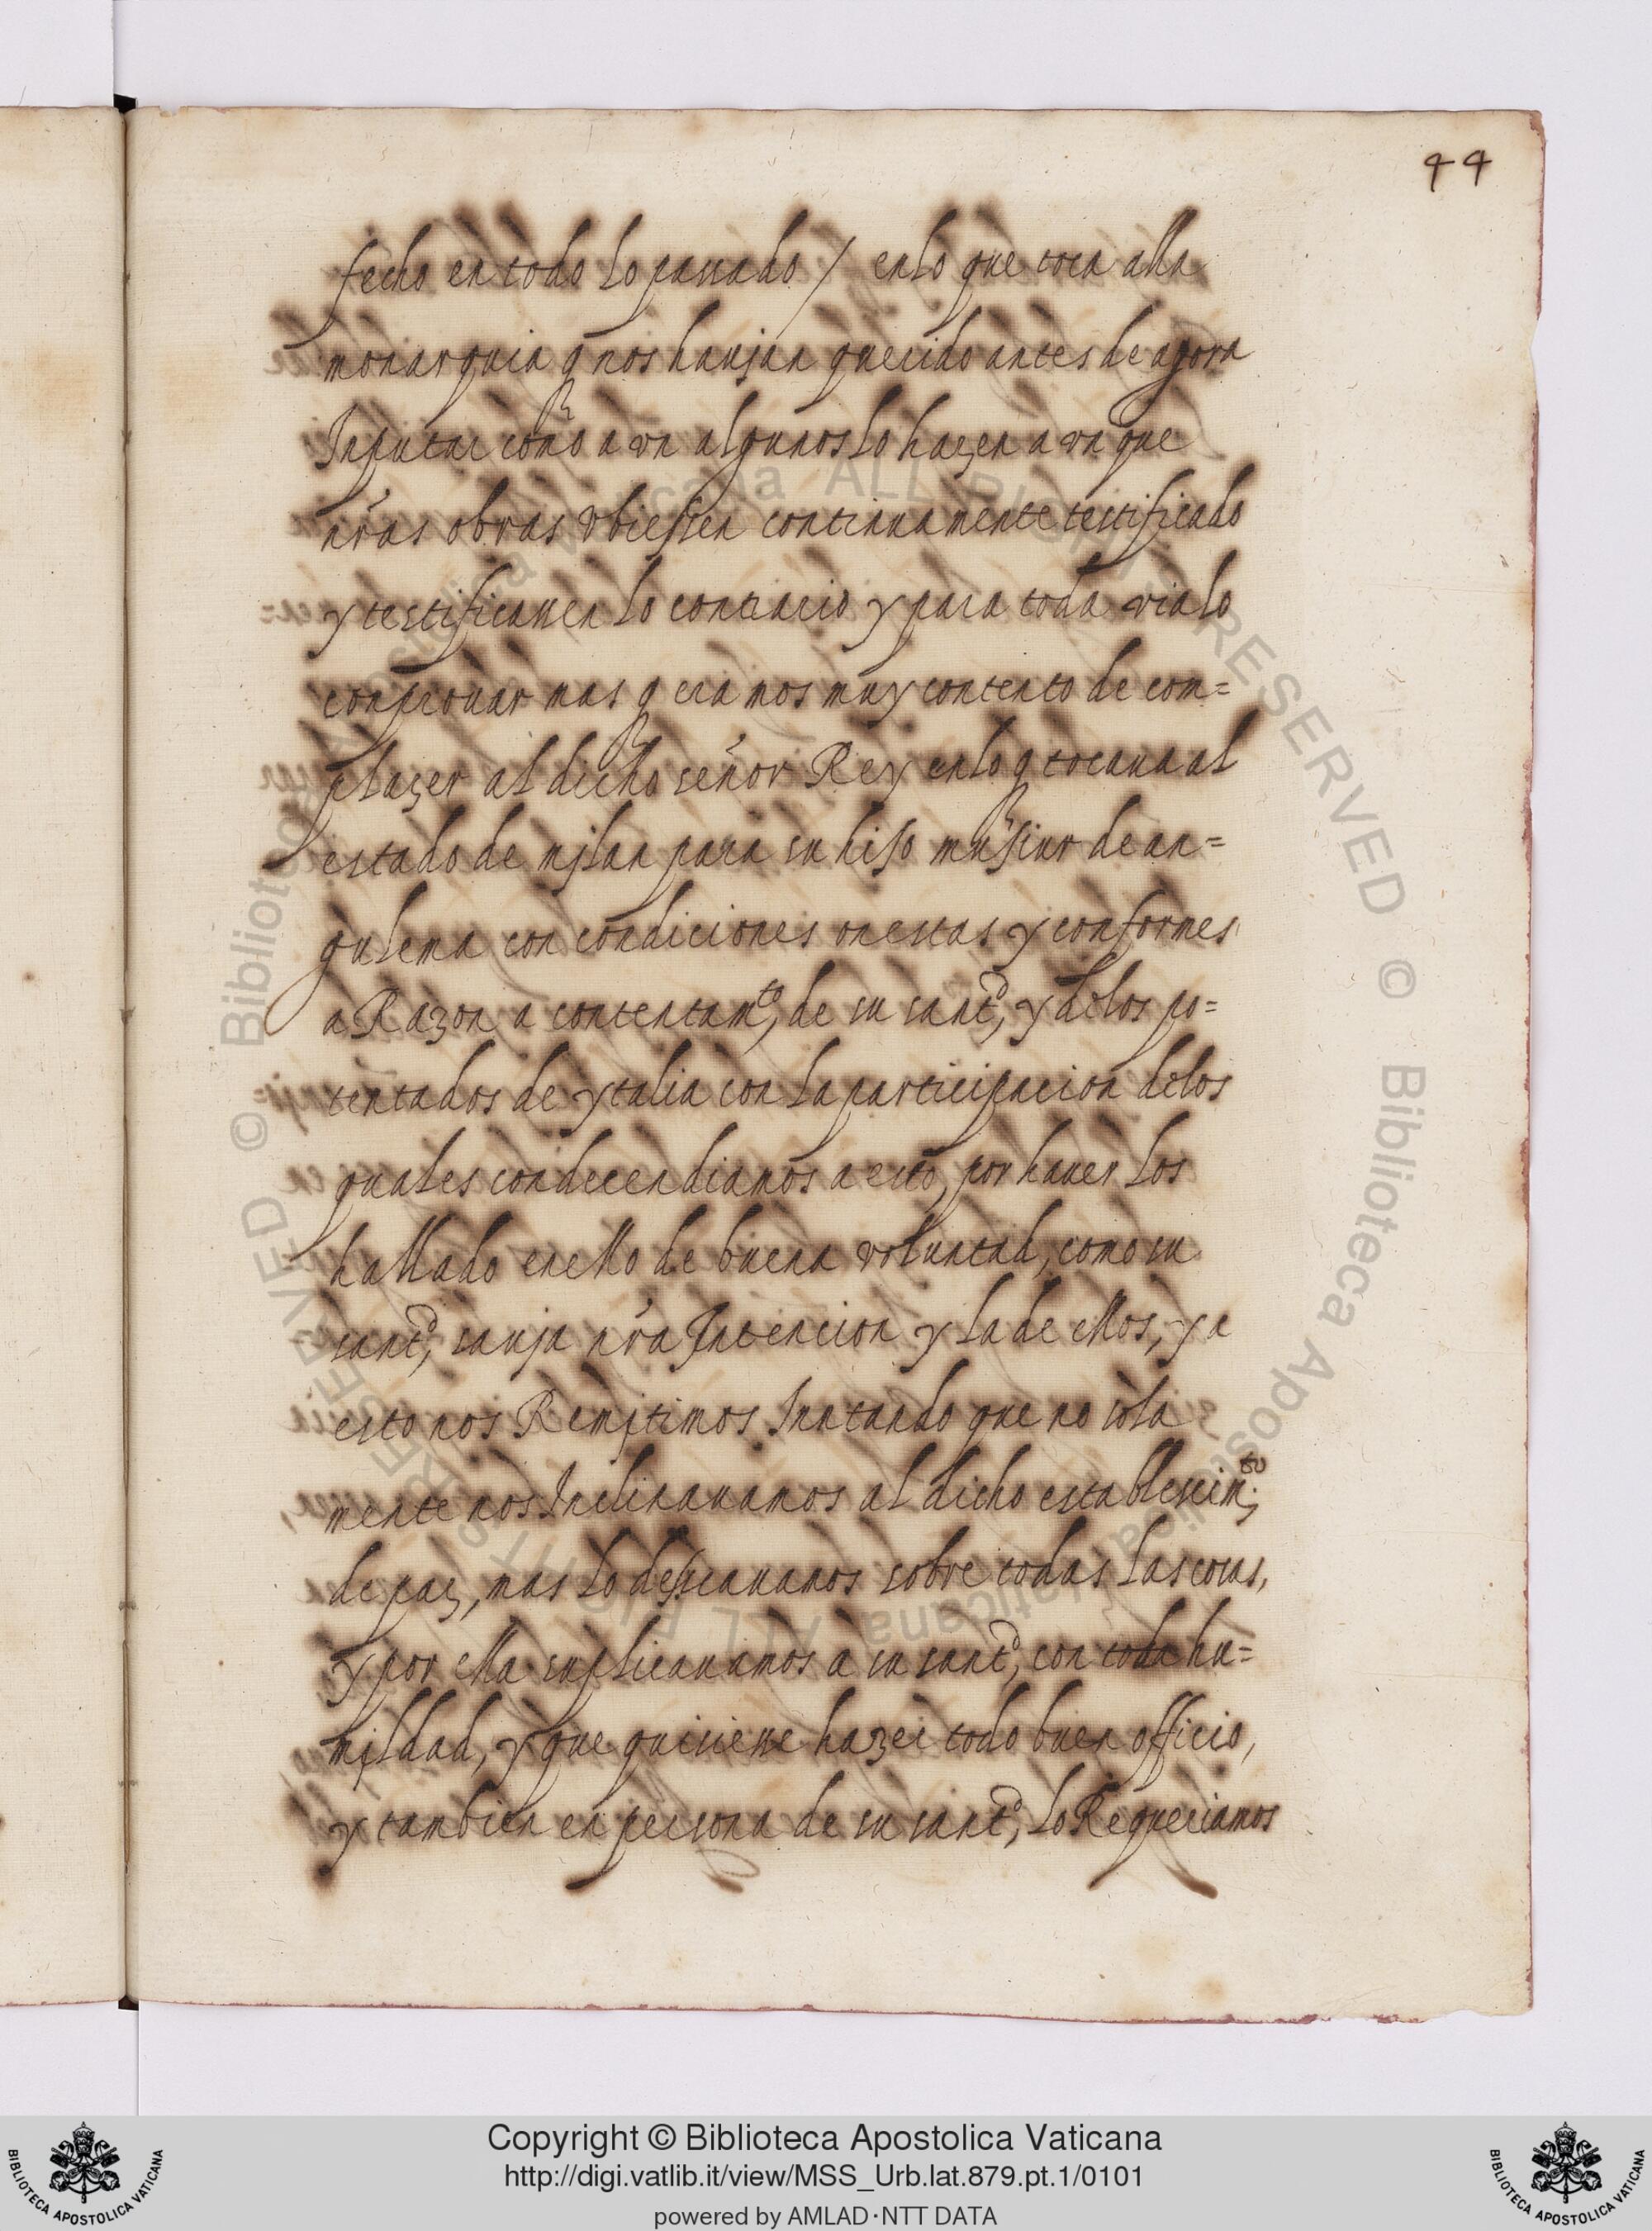 44
fecho en todo lo passado / enlo que toca alla
monarquia q nos haujan querido antes de agora
Inputar como a vn algunos lo hazen a vn que
nr̃as obras vbiessen continuamente testificado
y testificassen lo contrario y para toda via lo
conprouar mas q eramos muy contento de com=
plazer al dicho señor Rey enlo q tocaua al
estado de mjlan para su hijo musiur de an=
gulema con condiciones onestas y conformes
a Razon a contentamto, de su santd, y delos po=
tentados de ytalia con la participacion delos
quales condecendiamos a esto, por hauer los
hallado enello de buena voluntad, como su
santd, sauja nr̃a Intencion y la de ellos, y a
esto nos Remjtimos Juntando que no sola
mente nos Inclinauamos al dicho establescimto;
de paz, mas lo desseauamos sobre todas las cosas,
y por ella suplicauamos a su santd, con toda hu=
mjldad, y que quisiesse hazer todo buen officio,
y tambien en persona de su santd, lo Requeriamos
© Biblioteca Apostolica Vaticana ALL RIGHTS RESERVED © Biblioteca Apostolica Vaticana ALL RIGHTS RESERVED
Copyright © Biblioteca Apostolica Vaticana
http://digi.vatlib.it/view/MSS_Urb.lat.879.pt.1/0101
powered by AMLAD·NTT DATA
BIBLIOTECA APOSTOLICA VATICANA
BIBLIOTECA APOSTOLICA VATICANA